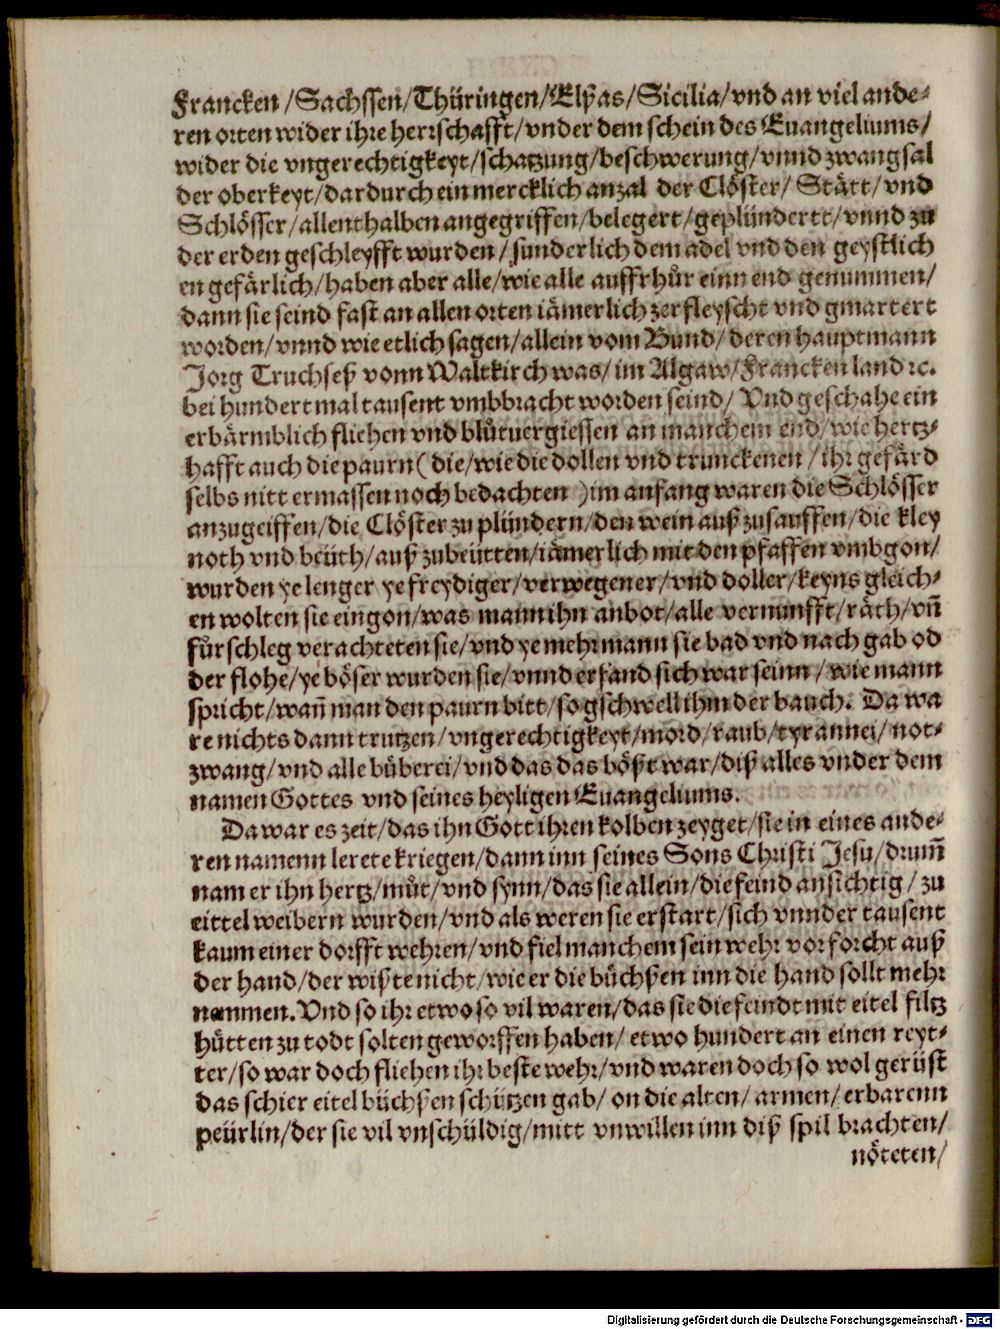 Francken /Sachssen/Thüringen/Elßas/Sicilia/vnd an viel ande-
ren orten wider ihre herrschafft/vnder dem schein des Euangeliums/
wider die vngerechtigkeyt/schatzung/beschwerung/vnnd zwangsal
der oberkeyt/dardurch ein mercklich anzal der Clöster/ Stätt/vnd
Schlösser/allenthalben angegriffen/belegert/geplündertt/vnnd zu
der erden geschleyfft wurden/sunderlich dem adel vnd den geystlich
en gefärlich/haben aber alle/wie alle auffrhůr einn end genummen/
dann sie seind fast an allen orten iämerlich zerfleyscht vnd gmartert
worden/vnnd wie etlich sagen/allein vom Bund/deren hauptmann
Jörg Truchseß vonn Waltkirch was/im Algaw/Francken land ꝛc.
bei hundert mal tausent vmbbracht worden seind/ Vnd geschahe ein
erbärmblich fliehen vnd blůtuergiessen an manchem end/wie hertz-
hafft auch die paurn( die/wie die dollen vnd trunckenen /ihr gefärd
selbs nitt ermassen noch bedachten )im anfang waren die Schlösser
anzugeiffen/die Clöster zu plündern/den wein auß zusauffen/die kley
noth vnd beüth/auß zubeütten/iämerlich mit den pfaffen vmbgon/
wurden ye lenger ye freydiger/verwegener/vnd doller/keyns gleich-
en wolten sie eingon/was mann ihn anbot/alle vernunfft/räth/vn̄
fůrschleg verachteten sie/vnd ye mehr mann sie bad vnd nach gab od
der flohe/ye böser wurden sie/vnnd erfand sich war seinn/wie mann
spricht/wan̄ man den paurn bitt/so gschwell ihm der bauch. Da wa
re nichts dann trutzen/vngerechtigkeyt/mord/raub/tyrannei/not-
zwang/vnd alle bůberei/vnd das das bößt war/diß alles vnder dem
namen Gottes vnd seines heyligen Euangeliums.
Da war es zeit/das ihn Gott ihren kolben zeyget/sie in eines ande-
ren namenn lerete kriegen/dann inn seines Sons Christi Jesu/drum̄
nam er ihn hertz/můt/vnd synn/das sie allein/die feind ansichtig/zu
eittel weibern wurden/vnd als weren sie erstart/sich vnnder tausent
kaum einer dorfft wehren/vnd fiel manchem sein wehr vor forcht auß
der hand/der wißte nicht/wie er die bůchßen inn die hand sollt mehr
nemmen. Vnd so ihr etwo so vil waren/das sie die feindt mit eitel filtz
hütten zu todt solten geworffen haben/etwo hundert an einen reyt-
ter/so war doch fliehen ihr beste wehr/vnd waren doch so wol gerüst
das schier eitel büchßen schützen gab/on die alten/armen/erbarenn
peürlin/der sie vil vnschüldig/mitt vnwillen inn diß spil brachten/
nöteten/
Digitalisierung gefördert durch die Deutsche Forschungsgemeinschaft - DFG